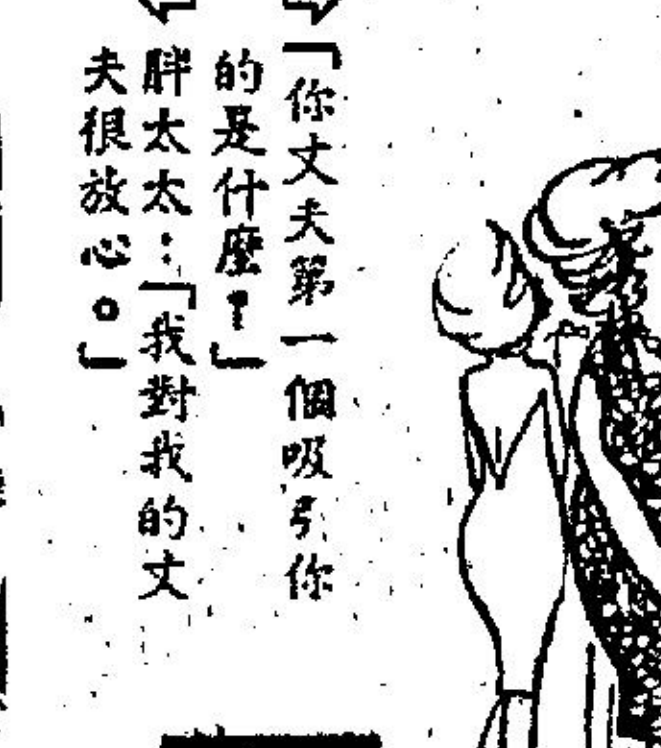 「你丈夫第一個吸引你
的是什麼？」
胖太太：「我對我的丈
夫很放心。」